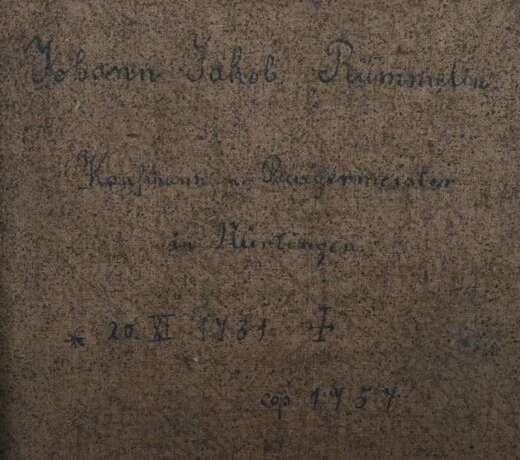 Johann Jakob Rümmelin.
Kaufmann u. Burgermeister
in Nürtingen.
* 20 XI 1731 ‡
cop 1757